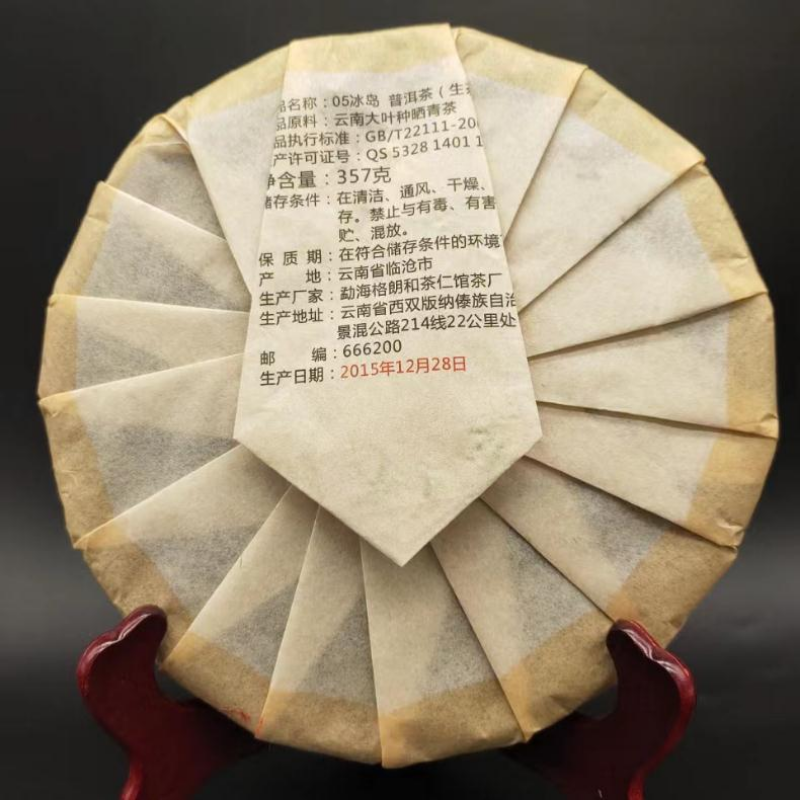 名称：05冰岛 普洱茶（生
原料：云南大叶种晒青茶
品执行标准：GB/T22111-20
产许可证号：QS 5328 1401 1
净含量：357克
储存条件：在清洁、通风、干燥、
存。禁止与有毒、有害
贮、混放。
保 质 期：在符合储存条件的环境
产 地：云南省临沧市
生产厂家：勐海格朗和茶仁馆茶厂
生产地址：云南省西双版纳傣族自治
景混公路214线22公里处
邮 编：666200
生产日期：2015年12月28日